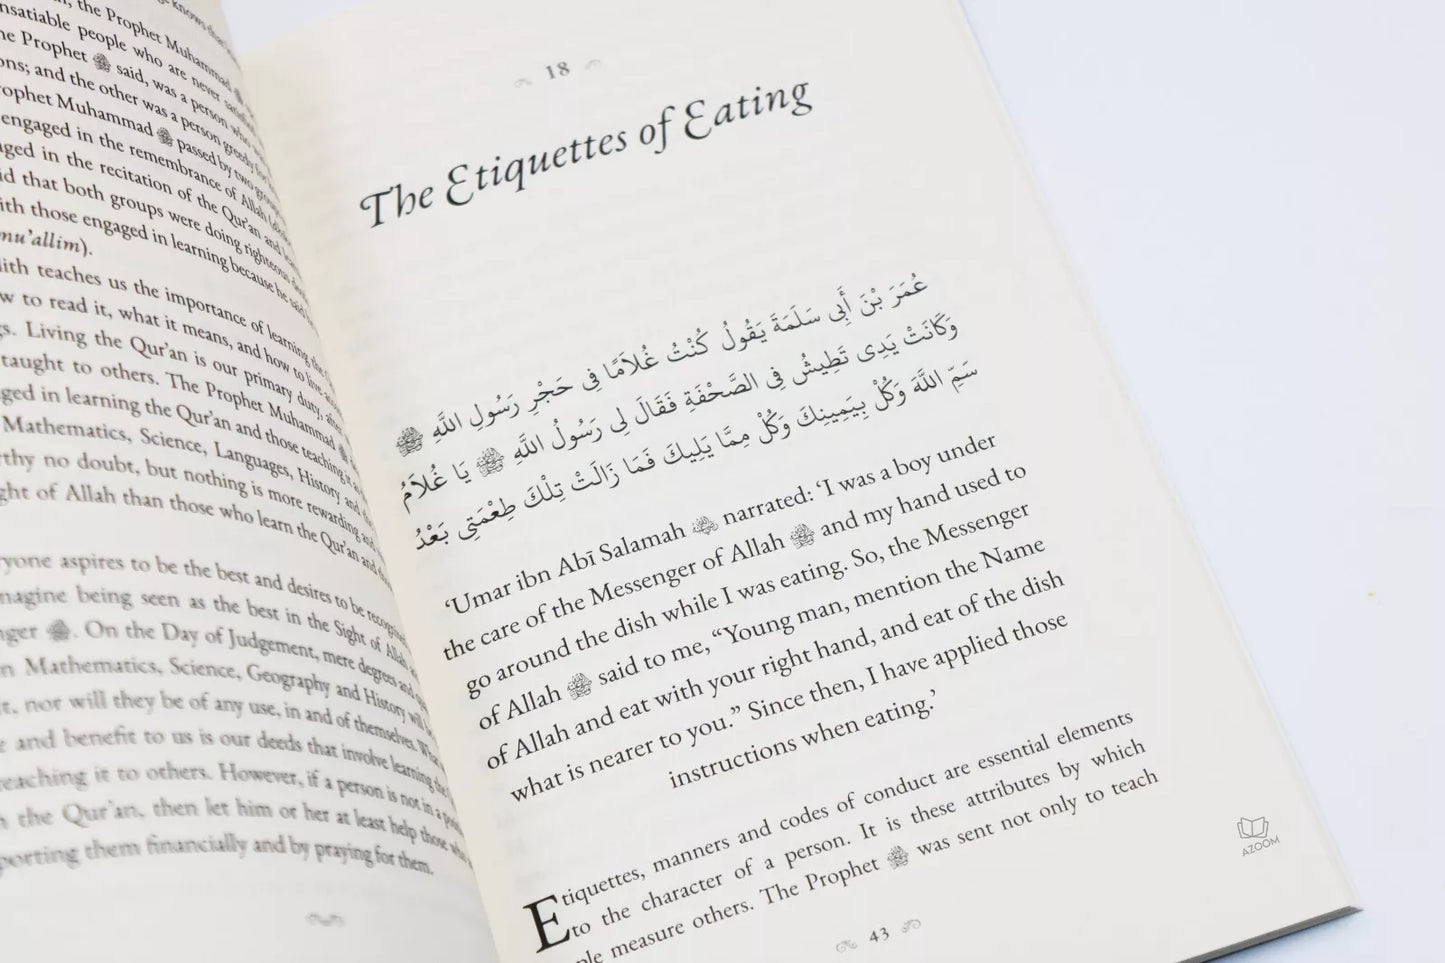 the Prophet Muhammad
insatiable people who are never
the Prophet ﷺ said, was a person who
and the other was a person greedy for
Prophet Muhammad ﷺ passed by two groups
engaged in the remembrance of Allah
in the recitation of the Qur'an and
that both groups were doing righteous
with those engaged in learning because he said
mu'allim).
teaches us the importance of learning the
to read it, what it means, and how to live
Living the Qur'an is our primary duty, after
taught to others. The Prophet Muhammad ﷺ
in learning the Qur'an and those teaching it
Mathematics, Science, Languages, History and
no doubt, but nothing is more rewarding and
of Allah than those who learn the Qur'an and
aspires to be the best and desires to be
imagine being seen as the best in the Sight of Allah
ﷺ. On the Day of Judgement, mere degrees and
in Mathematics, Science, Geography and History will
nor will they be of any use, in and of themselves.
and benefit to us is our deeds that involve learning the
teaching it to others. However, if a person is not in a
the Qur'an, then let him or her at least help those
them financially and by praying for them.
18
The Etiquettes of Eating
عُمَرَ بْنَ أَبِى سَلَمَةَ يَقُولُ كُنْتُ غُلَامًا فِى حَجْرِ رَسُولِ اللَّهِ ﷺ
وَكَانَتْ يَدِى تَطِيشُ فِى الصَّحْفَةِ فَقَالَ لِى رَسُولُ اللَّهِ ﷺ يَا غُلَامُ
سَمِّ اللَّهَ وَكُلْ بِيَمِينِكَ وَكُلْ مِمَّا يَلِيكَ فَمَا زَالَتْ تِلْكَ طِعْمَتِى بَعْدُ
'Umar ibn Abī Salamah narrated: 'I was a boy under
the care of the Messenger of Allah ﷺ and my hand used to
go around the dish while I was eating. So, the Messenger
of Allah ﷺ said to me, "Young man, mention the Name
of Allah and eat with your right hand, and eat of the dish
what is nearer to you." Since then, I have applied those
instructions when eating.'
Etiquettes, manners and codes of conduct are essential elements
to the character of a person. It is these attributes by which
measure others. The Prophet ﷺ was sent not only to teach
43
AZOOM